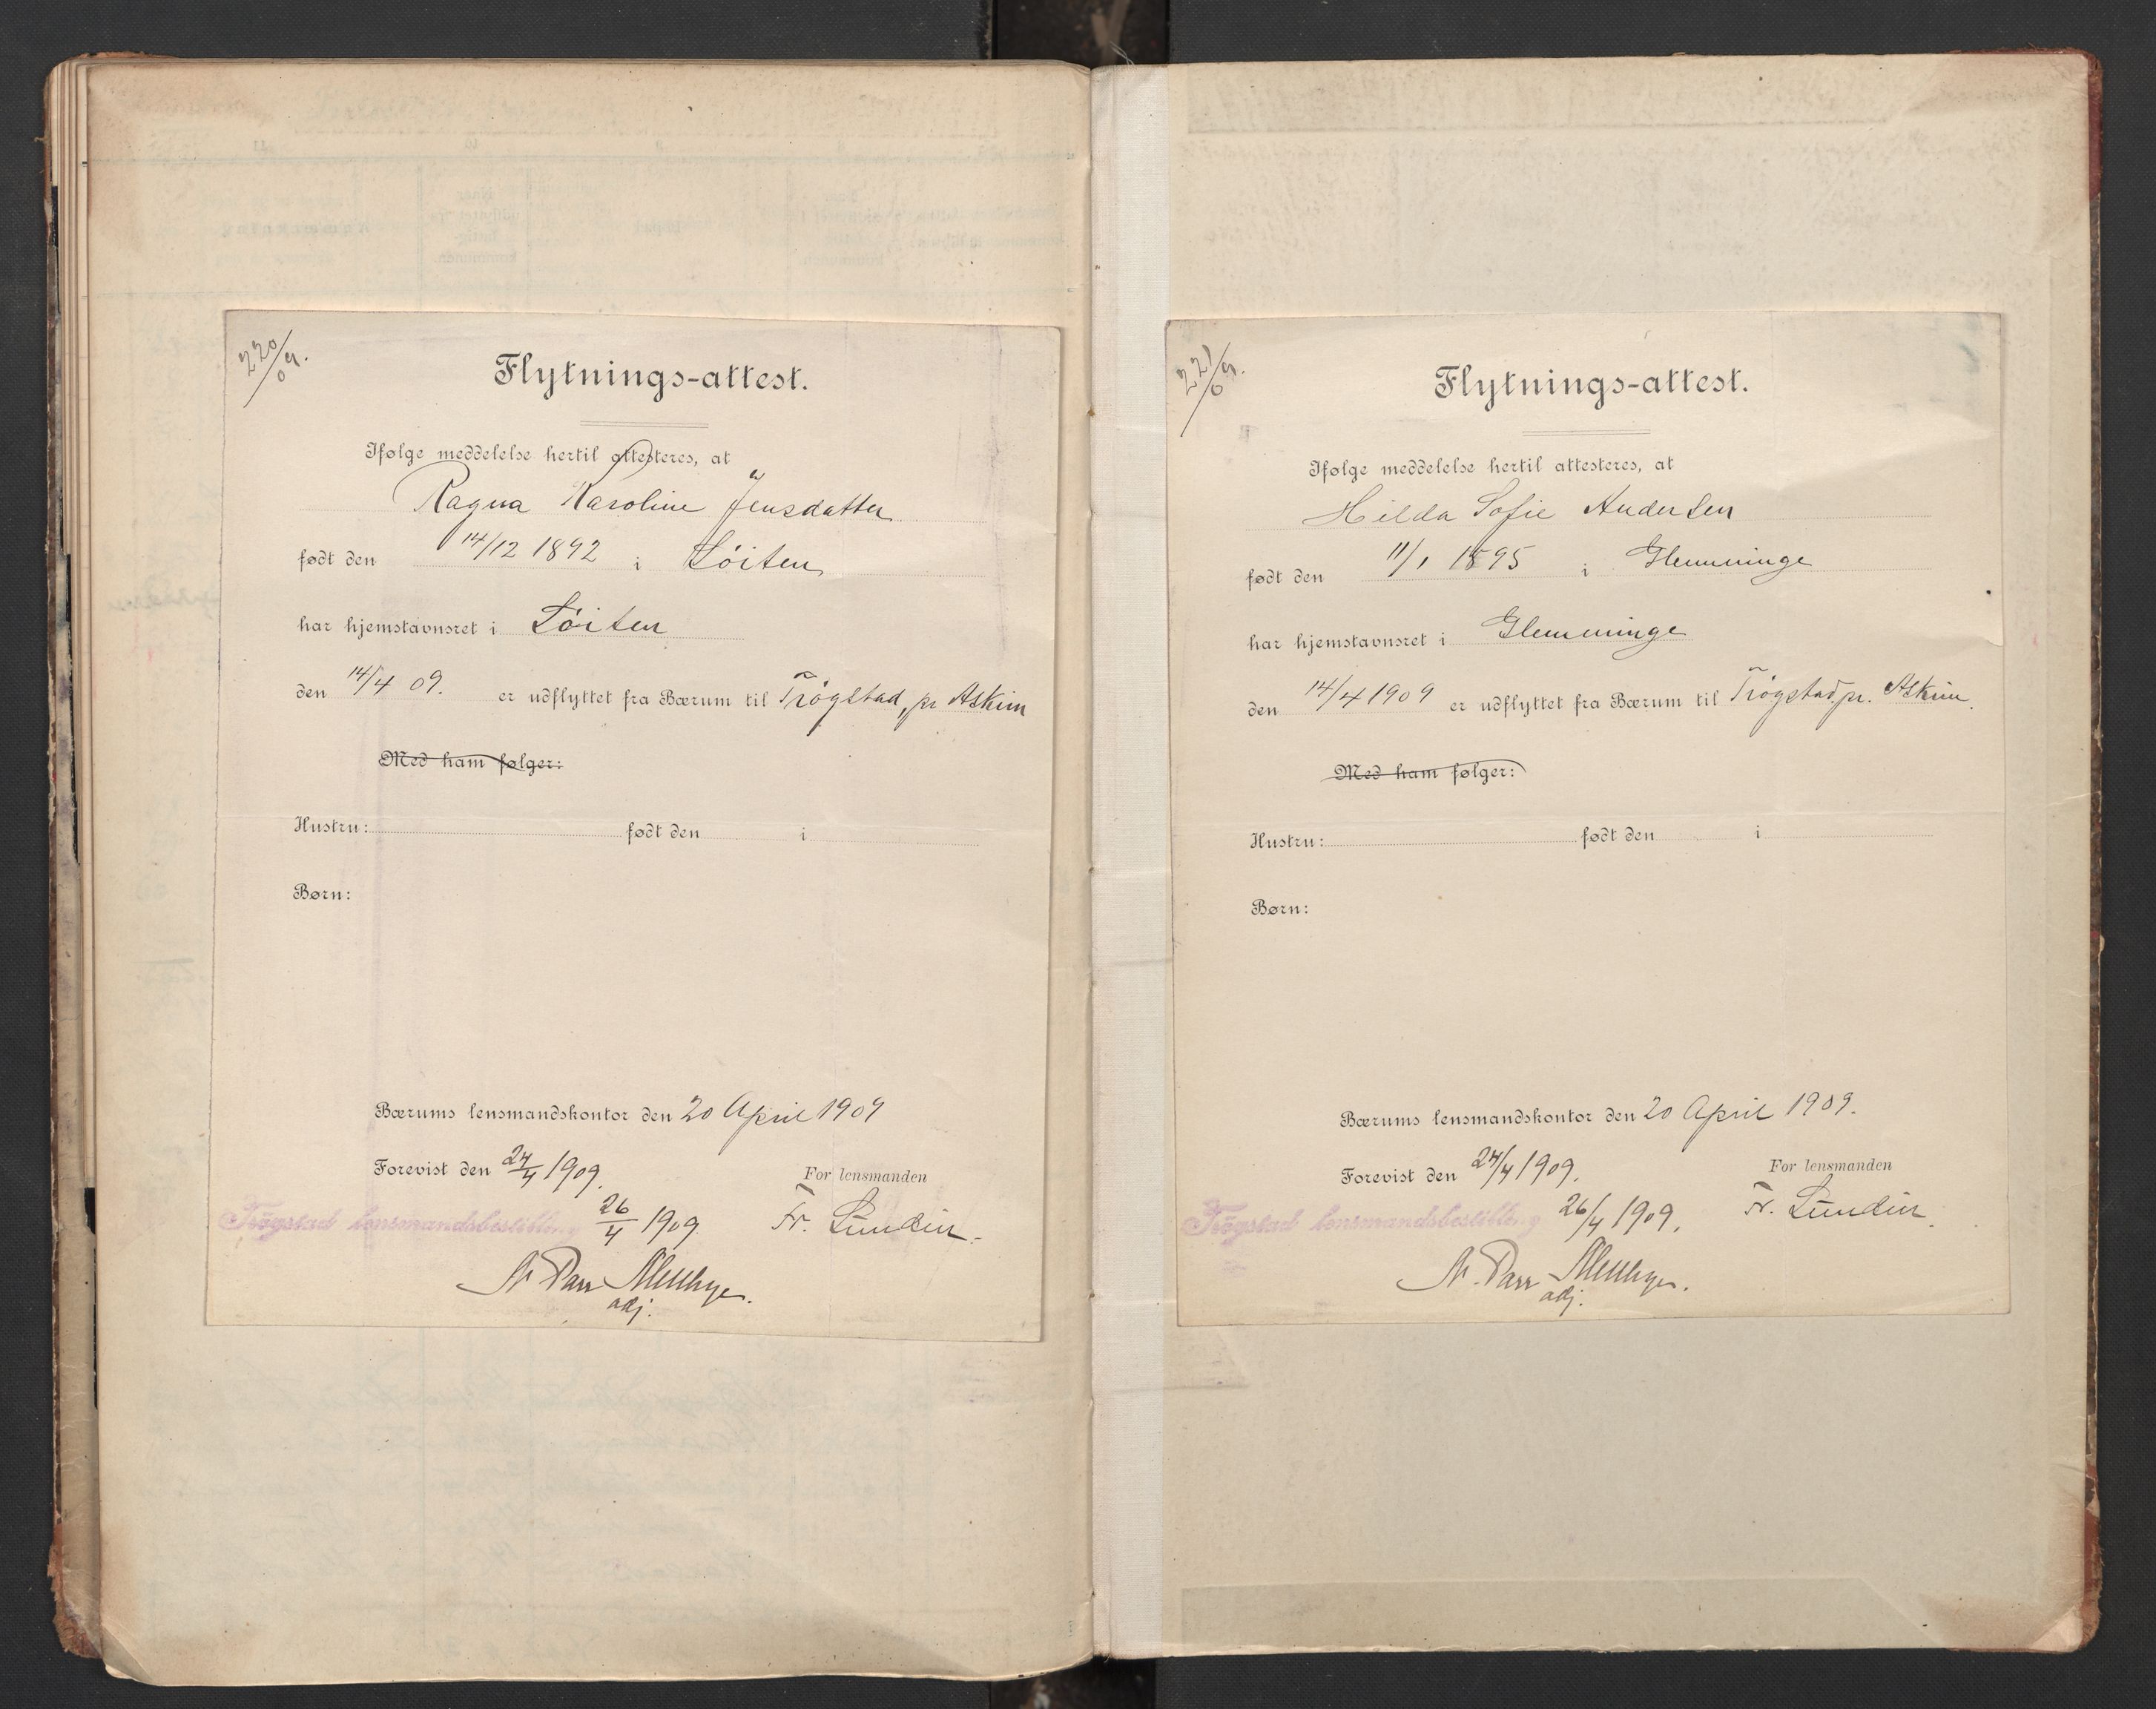 220/09.
Flytnings-attest.
Ifølge meddelelse hertil attesteres, at
Ragna Karoline Jensdatter
født den 14/12 1892 i Löiten
har hjemstavnsret i Löiten
den 14/4 09. er udflyttet fra Bærum til Trögstad, pr Askim
Med ham følger:
Hustru: født den i
Børn:
Bærums lensmandskontor den 20 April 1909
Forevist den 24/4 1909.
For lensmanden
Trögstad lensmandsbestilling 26/4 1909
Fr. Lundin.
adj.
221/09.
Flytnings-attest.
Ifølge meddelelse hertil attesteres, at
Hilda Sofie Andersen
født den 11/1 1895 i Glemminge
har hjemstavnsret i Glemminge
den 14/4 1909 er udflyttet fra Bærum til Trögstad pr. Askim.
Med ham følger:
Hustru: født den i
Børn:
Bærums lensmandskontor den 20 April 1909.
Forevist den 24/4 1909.
For lensmanden
Trögstad lensmandsbestilling 26/4 1909.
Fr. Lundin.
adj.